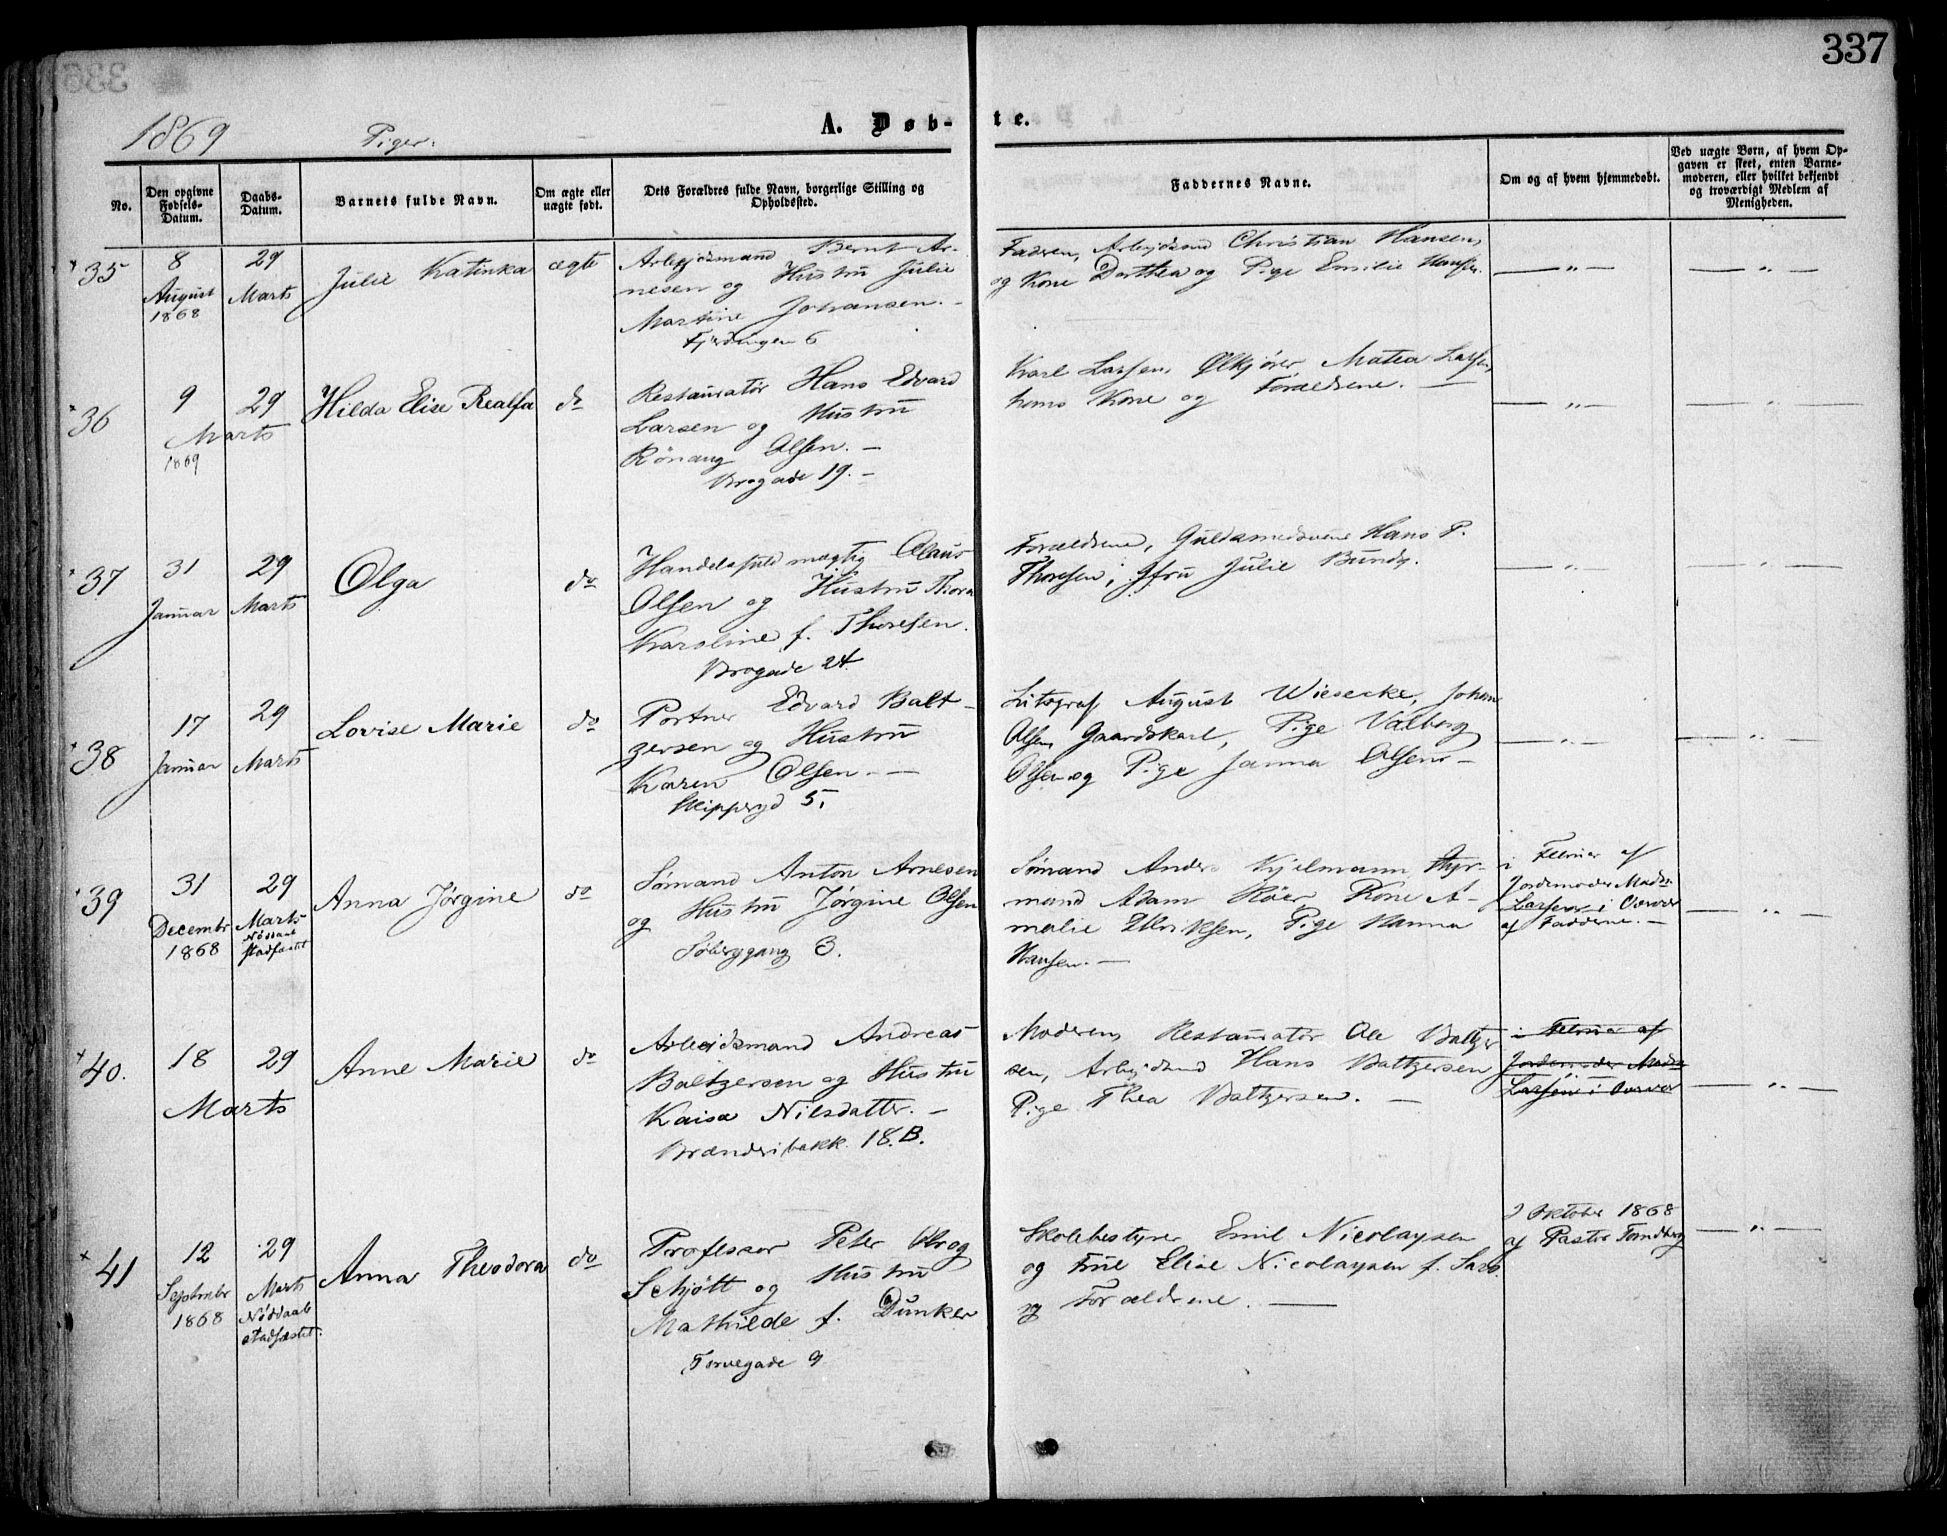 337
1869
Piger.
A. Døb-
te.
No.
Den opgivne
Fødsels-
Datum.
Daabs-
Datum.
Barnets fulde Navn.
Om ægte eller
uægte født.
Dets Forældres fulde Navn, borgerlige Stilling og
Opholdssted.
Faddernes Navne.
Om og af hvem hjemmedøbt.
Ved uægte Børn, af hvem Op-
gaven er skeet, enten Barne-
moderen, eller hvilket bekjendt
og troværdigt Medlem af
Menigheden.
35
8
August
1868
29
Marts
Julie Katinka
ægte
Arbejdsmand Bernt Ar-
nesen og Hustru Julie
Martine Johansen. -
Fjerdingen 6
Faderen, Arbejdsmd Christian Hansen,
og Kone Dorthea og Pige Emilie Hansen.
— " —
— " —
36
9
29
Marts
1869
Hilda Elise Realfa
do
Restauratør Hans Edvard
Larsen og Hustru
Rönaug Olsen. -
Brogade 19. -
Karl Larsen, Ølkjører, Matea Larsen,
hans Kone og Forældrene. —
— " —
— " —
37
31
Januar
29
Marts
Olga
do
Handelsfuldmægtig Olaus
Olsen og Hustru Thora
Karoline f. Thoresen.
Brogade 24.
Forældrene, Guldsmedsvend Hans P.
Thoresen, Jfru Julie Bundy.
— " —
— " —
38
17
Januar
29
Marts
Lovise Marie
do
Portner Edvard Balt-
zersen og Hustru
Karen Olsen. —
Skippergd 5.
Litograf August Wiesecke, Johan
Olsen, Gaardskarl, Pige Valborg
Olsen og Pige Janna Olsen. -
— " —
— " —
39
31
Decembr
1868
29
Marts
Nöddaab
stadfæstet
Anna Jørgine
do
Sømand Anton Arnesen
og Hustru Jørgine Olsen
Söberggang 3.
Sømand Anders Kjelmann, Styr-
mand Adam Röer, Kone A-
malie Ulriksen, Pige Hanna
Hansen. —
i Februar af
Jordemoder Mad.
Larsen i Overvær
af Fadderne. -
— " —
40.
18
29
Marts
Anne Marie
do
Arbeidsmand Andreas
Baltzersen og Hustru
Kaisa Nilsdatter. -
Brænderibakk. 18.B.
Moderen, Restauratør Ole Baltzer
sen, Arbejdsmd Hans Baltzersen
Pige Thea Baltzersen. —
i Februar af
Jordemoder Mad.
Larsen i Overvær
— " —
41
12
Septembr
1868
29
Marts
Nöddaab
stadfæstet.
Anna Theodora
do
Professor Peter Krog
Schjøtt og Hustru
Mathilde f. Dunker
Torvegade 9
Skolebestyrer Emil Nicolaysen
og Frue Elise Nicolaysen f. Sars.
og Forældrene. —
2 Oktober 1868
af Pastor Tandberg
— " —